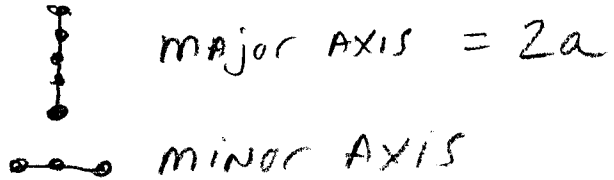 MAjor AXIS = 2a
MINOr AXIS